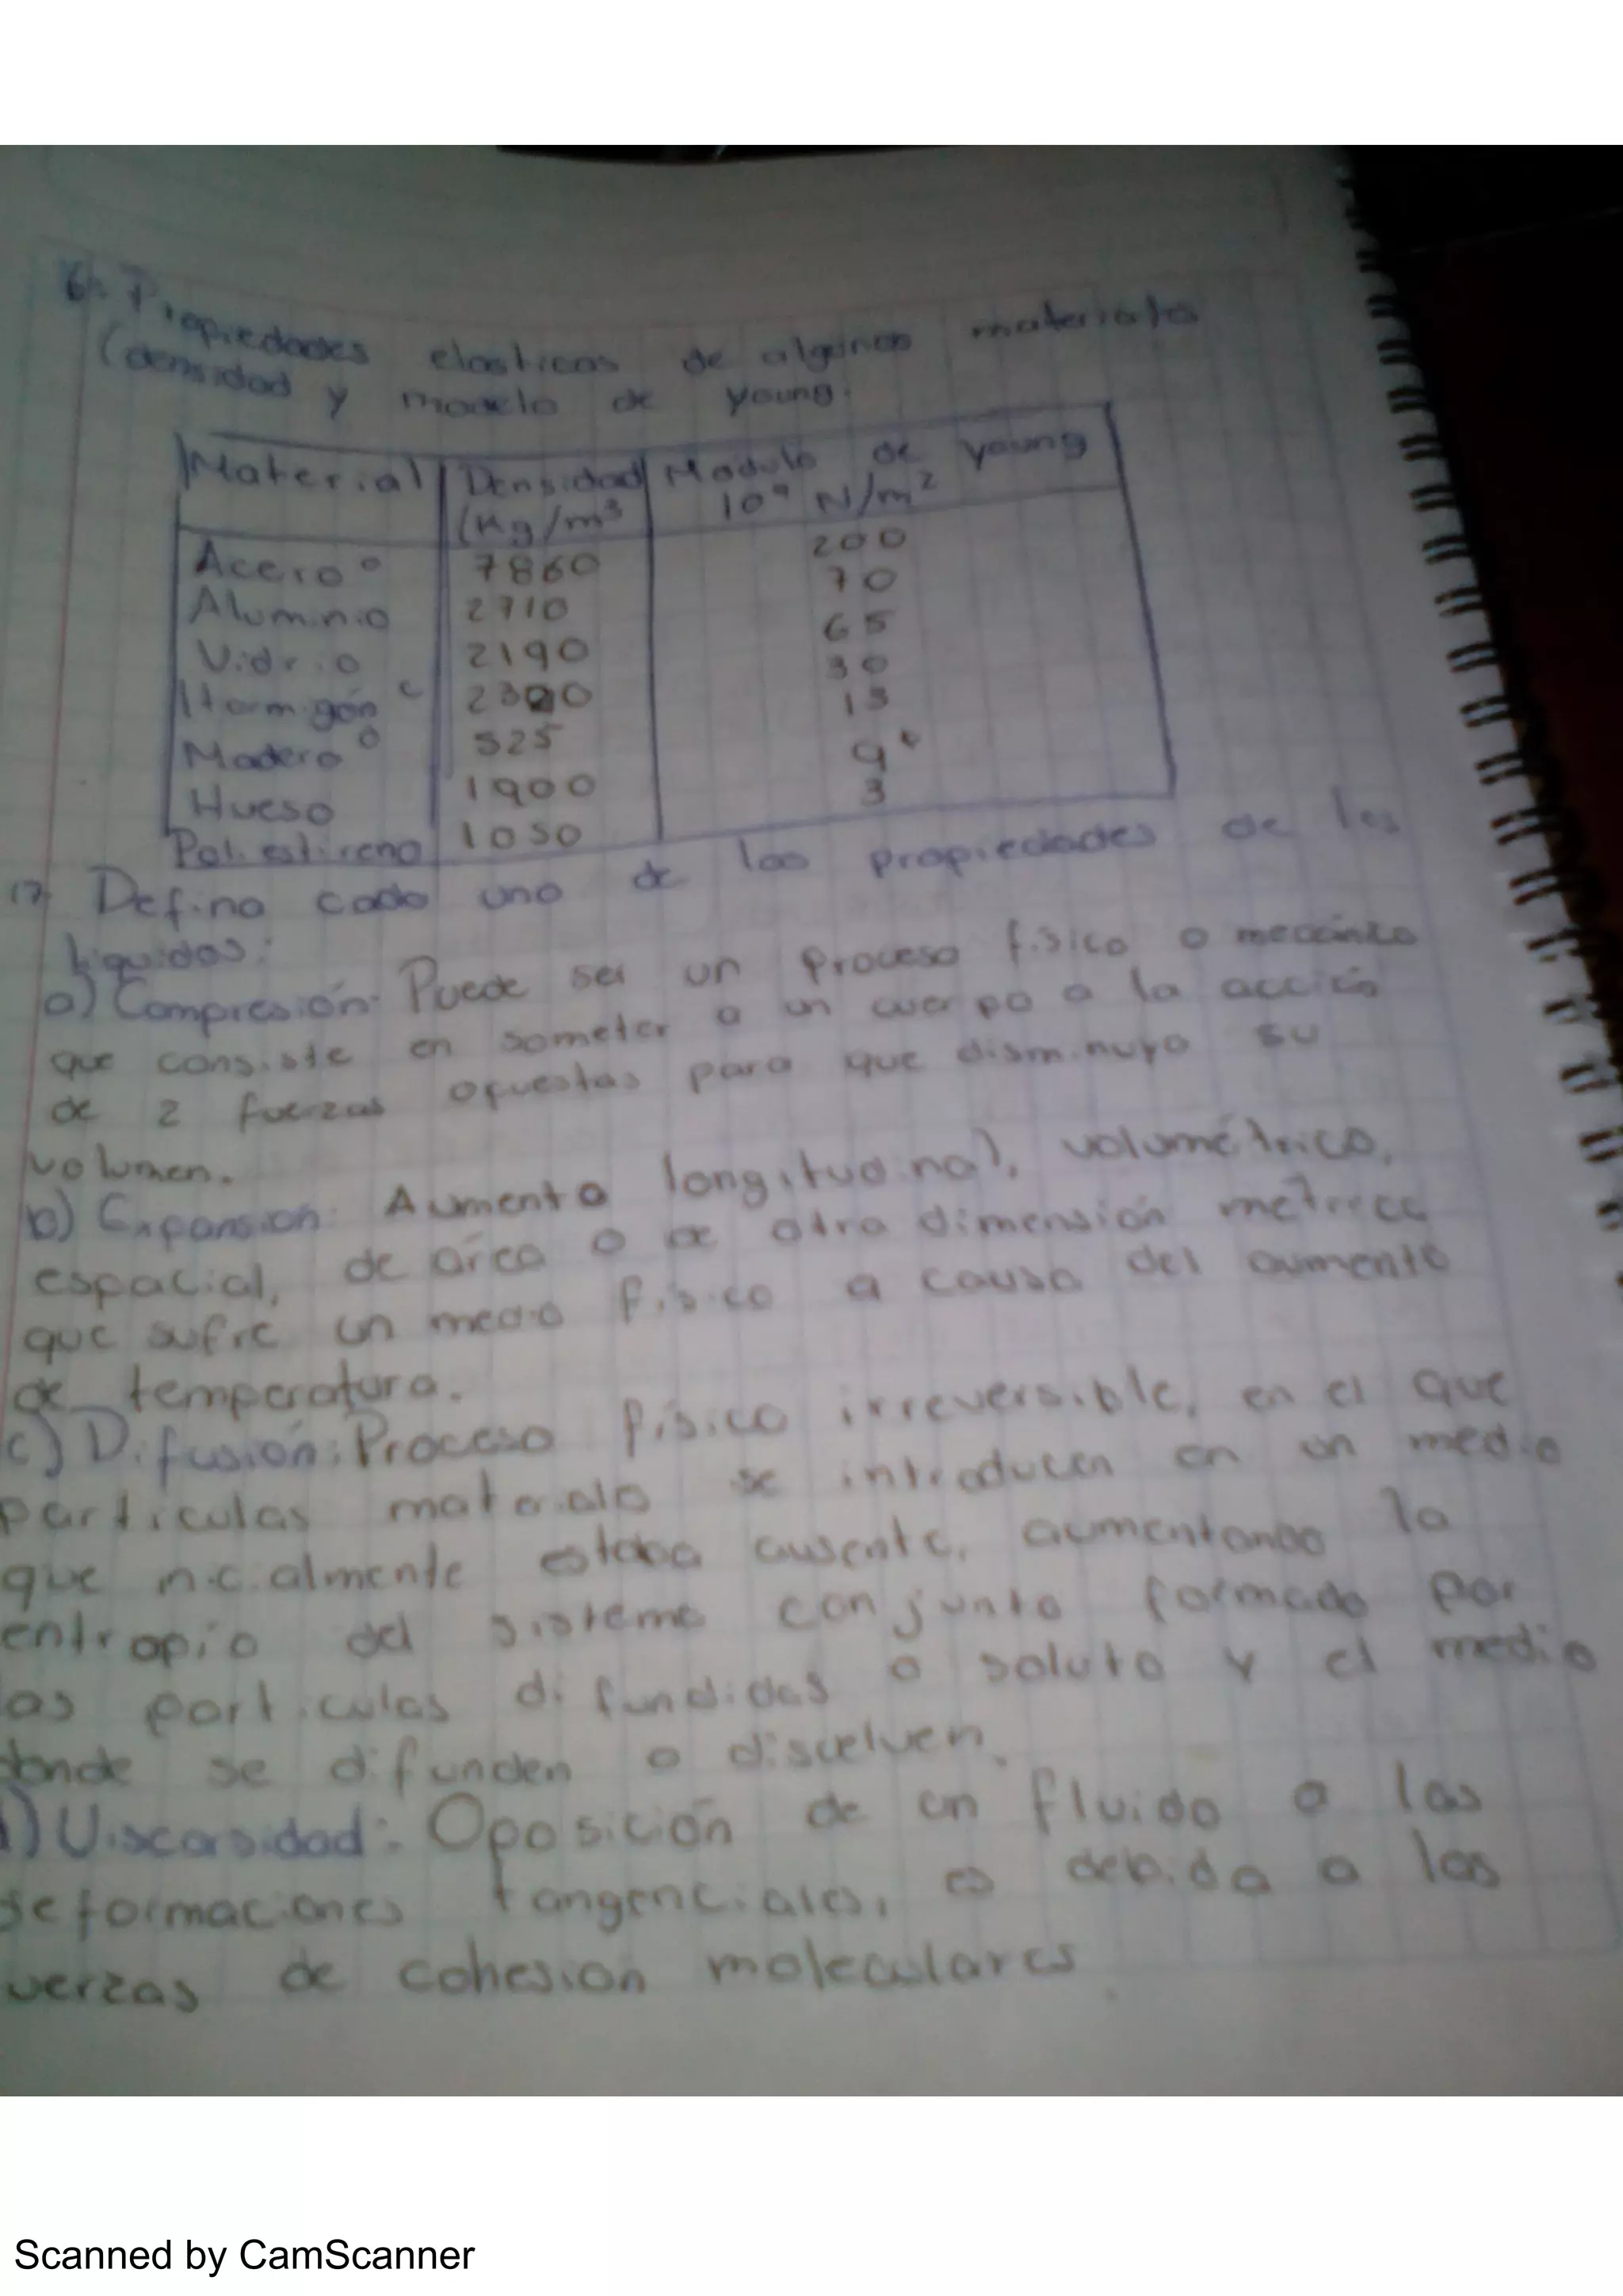 6. Propiedades elasticas de algunos materiales
(densidad y modelo de young.
Material Densidad Modulo de young
(Kg/m³ 10⁹ N/m²
Acero 7860 200
Aluminio 2710 70
Vidrio 2190 65
Hormigón 2320 30
Madera 525 13
Hueso 1900 9
Poliestireno 1050 3
17 Defina cada uno de las propiedades de los
liquidos:
a) Compresión: Puede ser un proceso fisico o mecánico
que consiste en someter a un cuerpo a la acción
de 2 fuerzas opuestas para que disminuya su
volumen.
b) Expansion: Aumento longitudinal, volumétrico,
espacial, de área o de otra dimensión metrica
que sufre un medio fisico a causa del aumento
de temperatura.
c) Difusión: Proceso físico irreversible, en el que
particulas materiales se introducen en un medio
que inicialmente estaba ausente, aumentando la
entropia del sistema conjunto formado por
as particulas difundidas o soluto y el medio
donde se difunden o disuelven.
) Viscosidad: Oposición de un fluido a las
deformaciones tangenciales, es debida a las
uerzas de cohesion moleculares
Scanned by CamScanner